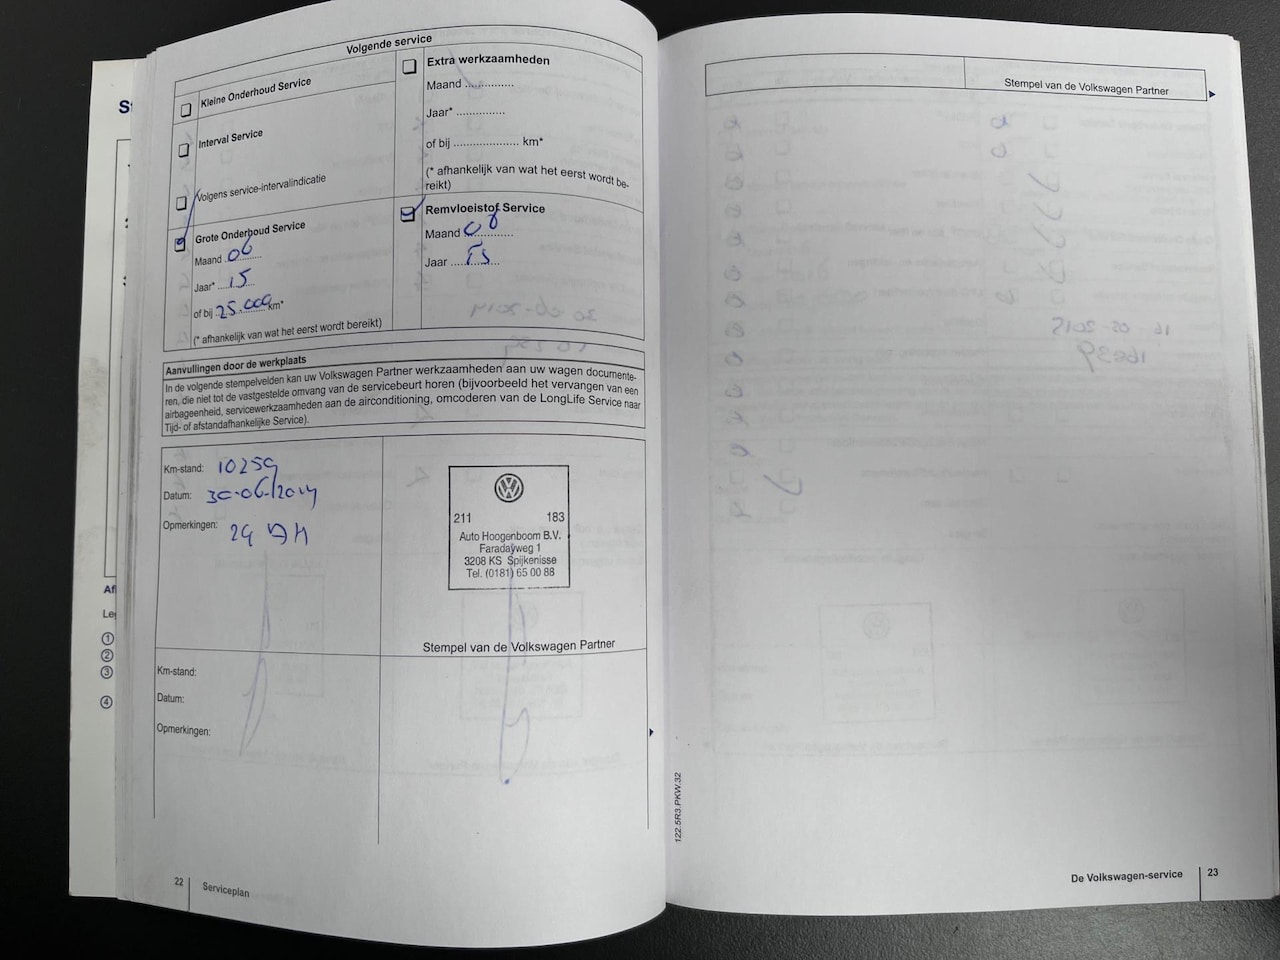 Volgende service
Kleine Onderhoud Service
Interval Service
Volgens service-intervalindicatie
Grote Onderhoud Service
Maand 06
Jaar* 15
of bij 25.000 km*
(* afhankelijk van wat het eerst wordt bereikt)
Extra werkzaamheden
Maand ..............
Jaar* ..............
of bij .................... km*
(* afhankelijk van wat het eerst wordt be-
reikt)
Remvloeistof Service
Maand 06
Jaar 15
Aanvullingen door de werkplaats
In de volgende stempelvelden kan uw Volkswagen Partner werkzaamheden aan uw wagen documente-
ren, die niet tot de vastgestelde omvang van de servicebeurt horen (bijvoorbeeld het vervangen van een
airbageenheid, servicewerkzaamheden aan de airconditioning, omcoderen van de LongLife Service naar
Tijd- of afstandafhankelijke Service).
Km-stand: 10259
Datum: 30-06-2014
Opmerkingen:
VW
211 183
Auto Hoogenboom B.V.
Faradayweg 1
3208 KS Spijkenisse
Tel. (0181) 65 00 88
Stempel van de Volkswagen Partner
Km-stand:
Datum:
Opmerkingen:
22 Serviceplan
Stempel van de Volkswagen Partner
122.5R3.PKW.32
De Volkswagen-service 23
St
Af
Le
1
2
3
4